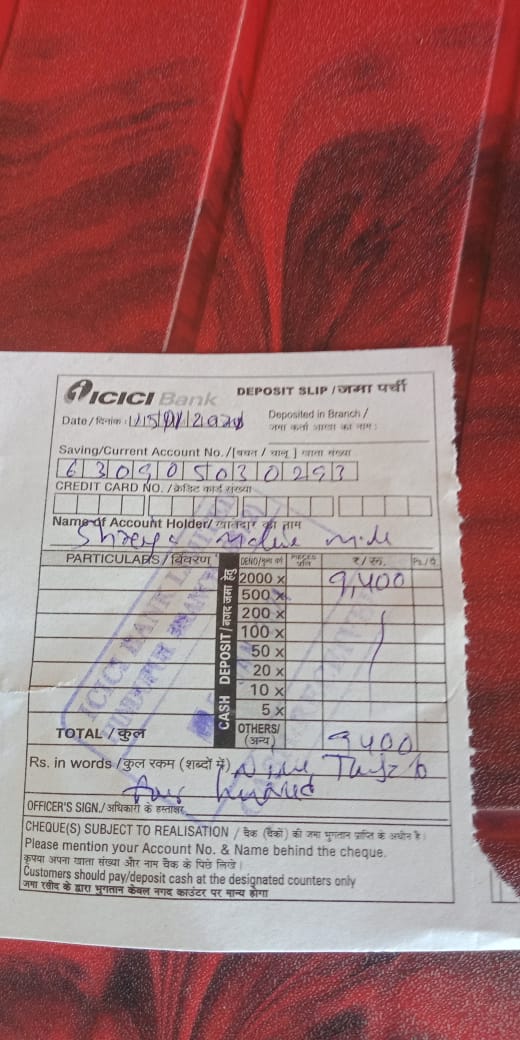 ICICI Bank DEPOSIT SLIP / जमा पर्ची
Date / दिनांक : Deposited in Branch /
जमा कर्ता शाखा का नाम :
Saving/Current Account No. /[बचत / चालू ] खाता संख्या
630905030293
CREDIT CARD NO. /क्रेडिट कार्ड संख्या
Name of Account Holder/ खातेदार का नाम
PARTICULARS / विवरण DENO/मूल्य वर्ग PIECES ₹/रू. Ps./पै.
CASH DEPOSIT/नगद जमा हेतु
2000 x 9,400
500 x
200 x
100 x
50 x
20 x
10 x
5 x
TOTAL / कुल OTHERS/ (अन्य) 9400
Rs. in words /कुल रकम (शब्दों में) Nine
four hundred
OFFICER'S SIGN./अधिकारी के हस्ताक्षर
CHEQUE(S) SUBJECT TO REALISATION / चैक (चैकों) की जमा भुगतान प्राप्ति के अधीन है।
Please mention your Account No. & Name behind the cheque.
कृपया अपना खाता संख्या और नाम चैक के पिछे लिखे।
Customers should pay/deposit cash at the designated counters only
जमा रसीद के द्वारा भुगतान केवल नगद काउंटर पर मान्य होगा
ICICI BANK LIMITED